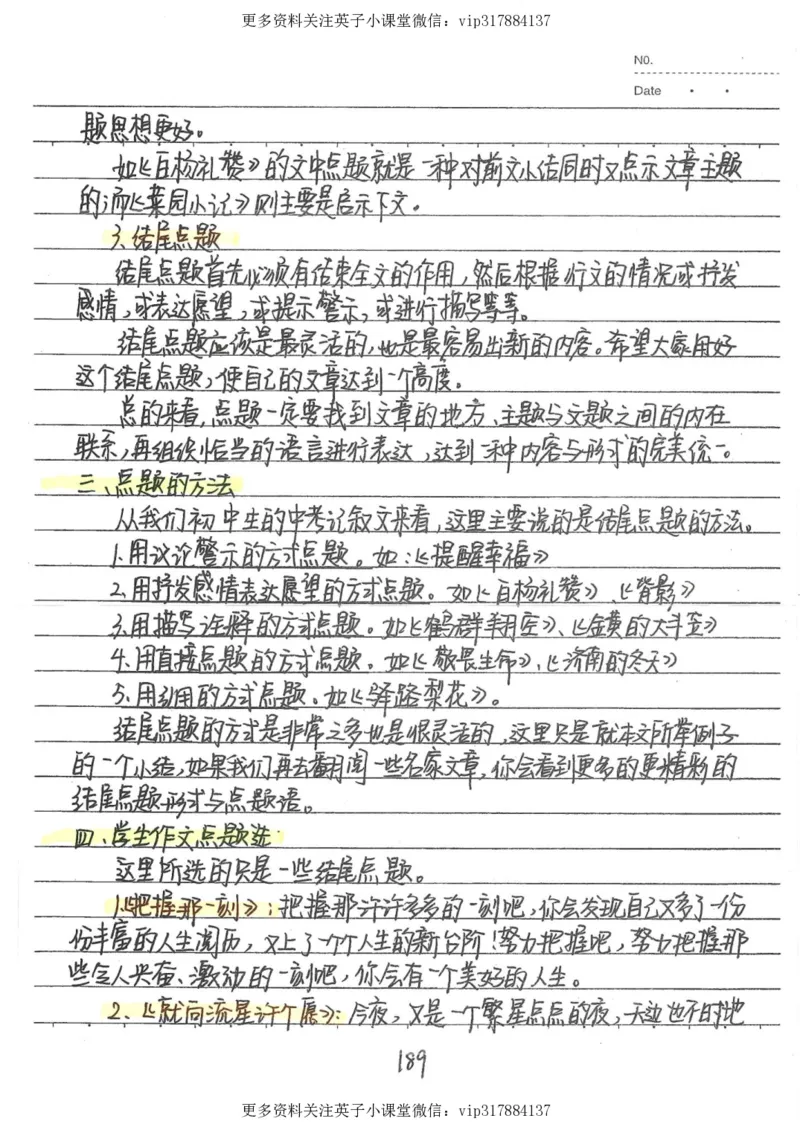 更多资料关注英子小课堂微信：vip317884137
NO.
Date
题思想更好。
如《白杨礼赞》的文中点题就是一种对前文小结同时又点示文章主题
的，而《菜园小记》则主要是启示下文。
3、结尾点题
结尾点题首先必须有结束全文的作用，然后根据行文的情况或抒发
感情，或表达愿望，或提示警示，或进行描写等等。
结尾点题应该是最灵活的，也是最容易出新的内容。希望大家用好
这个结尾点题，使自己的文章达到一个高度。
总的来看，点题一定要找到文章的地方、主题与文题之间的内在
联系，再组织恰当的语言进行表达，达到一种内容与形式的完美统一。
三、点题的方法
从我们初中生的中考记叙文来看，这里主要说的是结尾点题的方法。
1、用议论警示的方式点题。如：《提醒幸福》
2、用抒发感情表达愿望的方式点题。如《白杨礼赞》、《背影》
3、用描写诠释的方式点题。如《鹤群翔空》、《金黄的大斗笠》
4、用直接点题的方式点题。如《敬畏生命》、《济南的冬天》
5、用引用的方式点题。如《驿路梨花》。
结尾点题的方式是非常之多也是很灵活的，这里只是就本文所举例子
的一个小结，如果我们再去翻阅一些名家文章，你会看到更多的更精彩的
结尾点题形式与点题语。
四、学生作文点题选
这里所选的只是一些结尾点题。
1、《把握那一刻》：把握那许许多多的一刻吧，你会发现自己又多了一份
份丰富的人生阅历，又上了一个个人生的新台阶！努力把握吧，努力把握那
些令人兴奋、激动的一刻吧，你会有一个美好的人生。
2、《就向流星许个愿》：今夜，又是一个繁星点点的夜，天边也不时地
189
更多资料关注英子小课堂微信：vip317884137